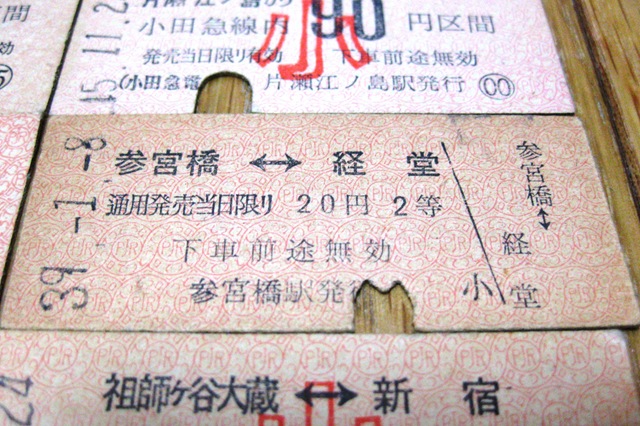 小田急線内 90 円区間
発売当日限り有効 下車前途無効
(小田急電 片瀬江ノ島駅発行 00
小
15.11.2
39-1-8
参宮橋 ↔ 経堂
通用発売当日限り 20円 2等
下車前途無効
参宮橋駅発行
小
参宮橋↔経堂
祖師ヶ谷大蔵 ↔ 新宿
小